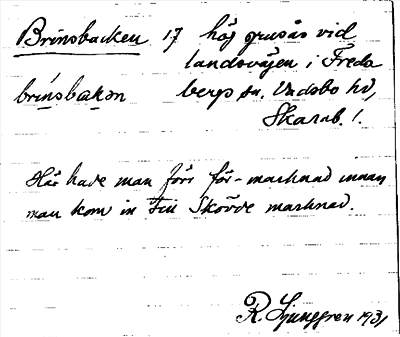 Brinsbacken 17 hög grusås vid
landsvägen i Freds
brinsbakən bergs sn. Vadsbo hd,
Skarab. l.
Här hade man förr för-marknad innan
man kom in till Skövde marknad.
R. Ljunggren 1931